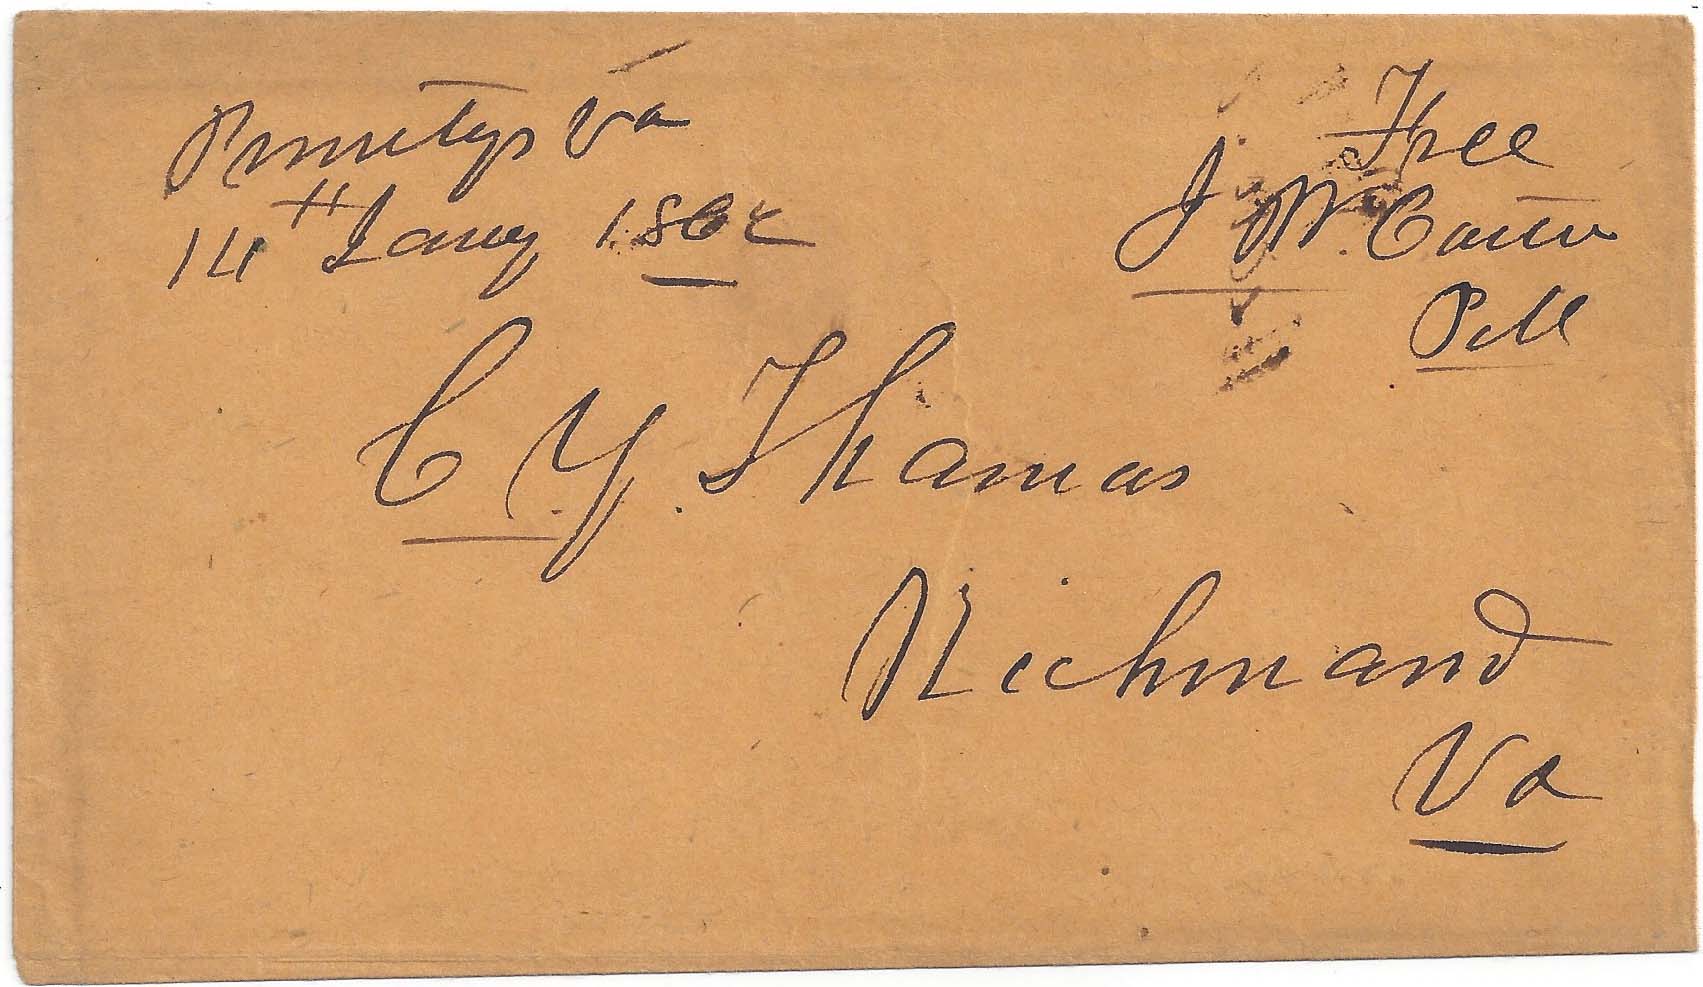 Pruntys Va
14th Jany 1862
Free
J W. Carter
P M
C Y. Thomas
Richmond
Va